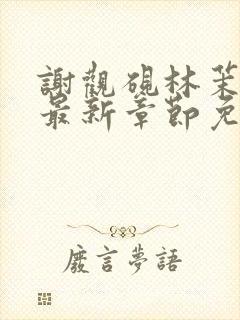 謝觀硯林茉
最新章節免
廢言夢語